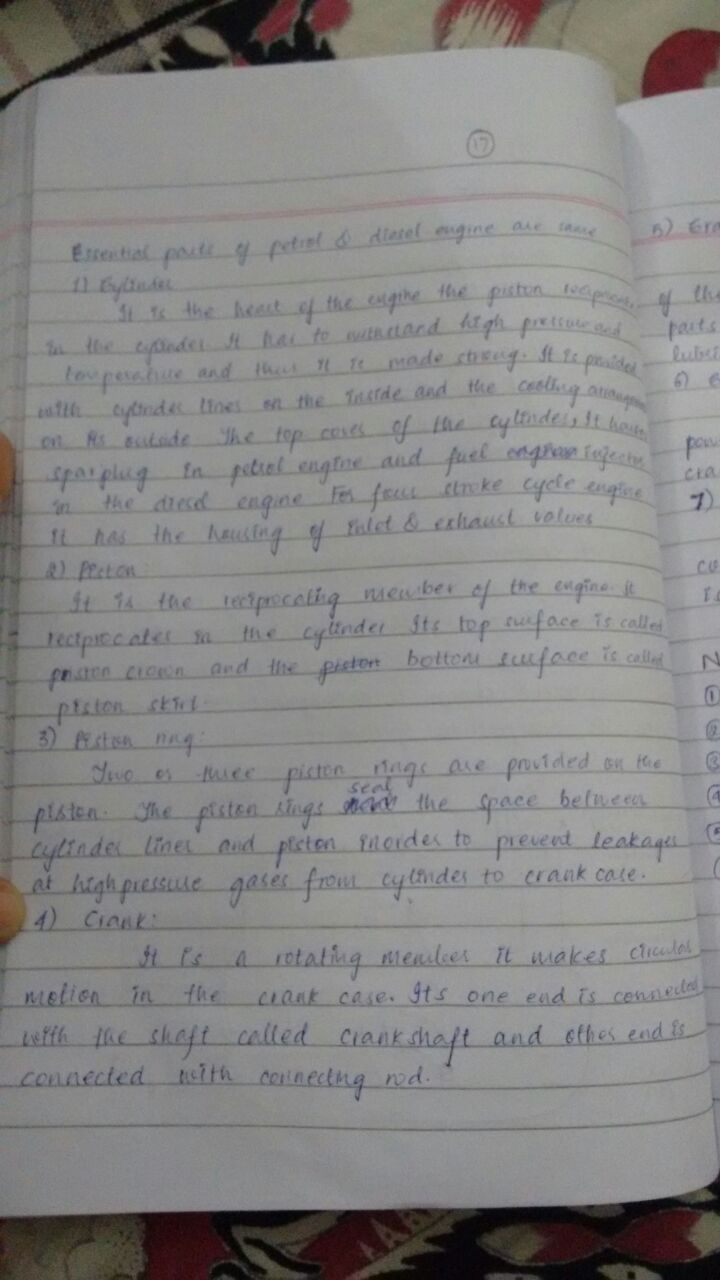 17
Essential parts of petrol & diesel engine are same
1) Cylinder
It is the heart of the engine the piston
in the cylinder It has to withstand high pressure and
temperature and thus it is made strong. It is provided
with cylinder lines on the inside and the cooling
on its outside The top cover of the cylinder, It
sparplug in petrol engine and fuel injector
in the diesel engine For four stroke cycle engine
it has the housing of inlet & exhaust valves
2) Piston
It is the reciprocating member of the engine. It
reciprocates in the cylinder Its top surface is called
piston crown and the piston bottom surface is called
piston skirt.
3) Piston ring:
Two or three piston rings are provided on the
piston. The piston rings seal the space between
cylinder liner and piston inorder to prevent leakages
at highpressure gases from cylinder to crank case.
4) Crank:
It is a rotating member it makes circular
motion in the crank case. Its one end is connected
with the shaft called crankshaft and other end is
connected with connecting rod.
of the
parts
6)
pow
cra
7)
N
1
2
3
4